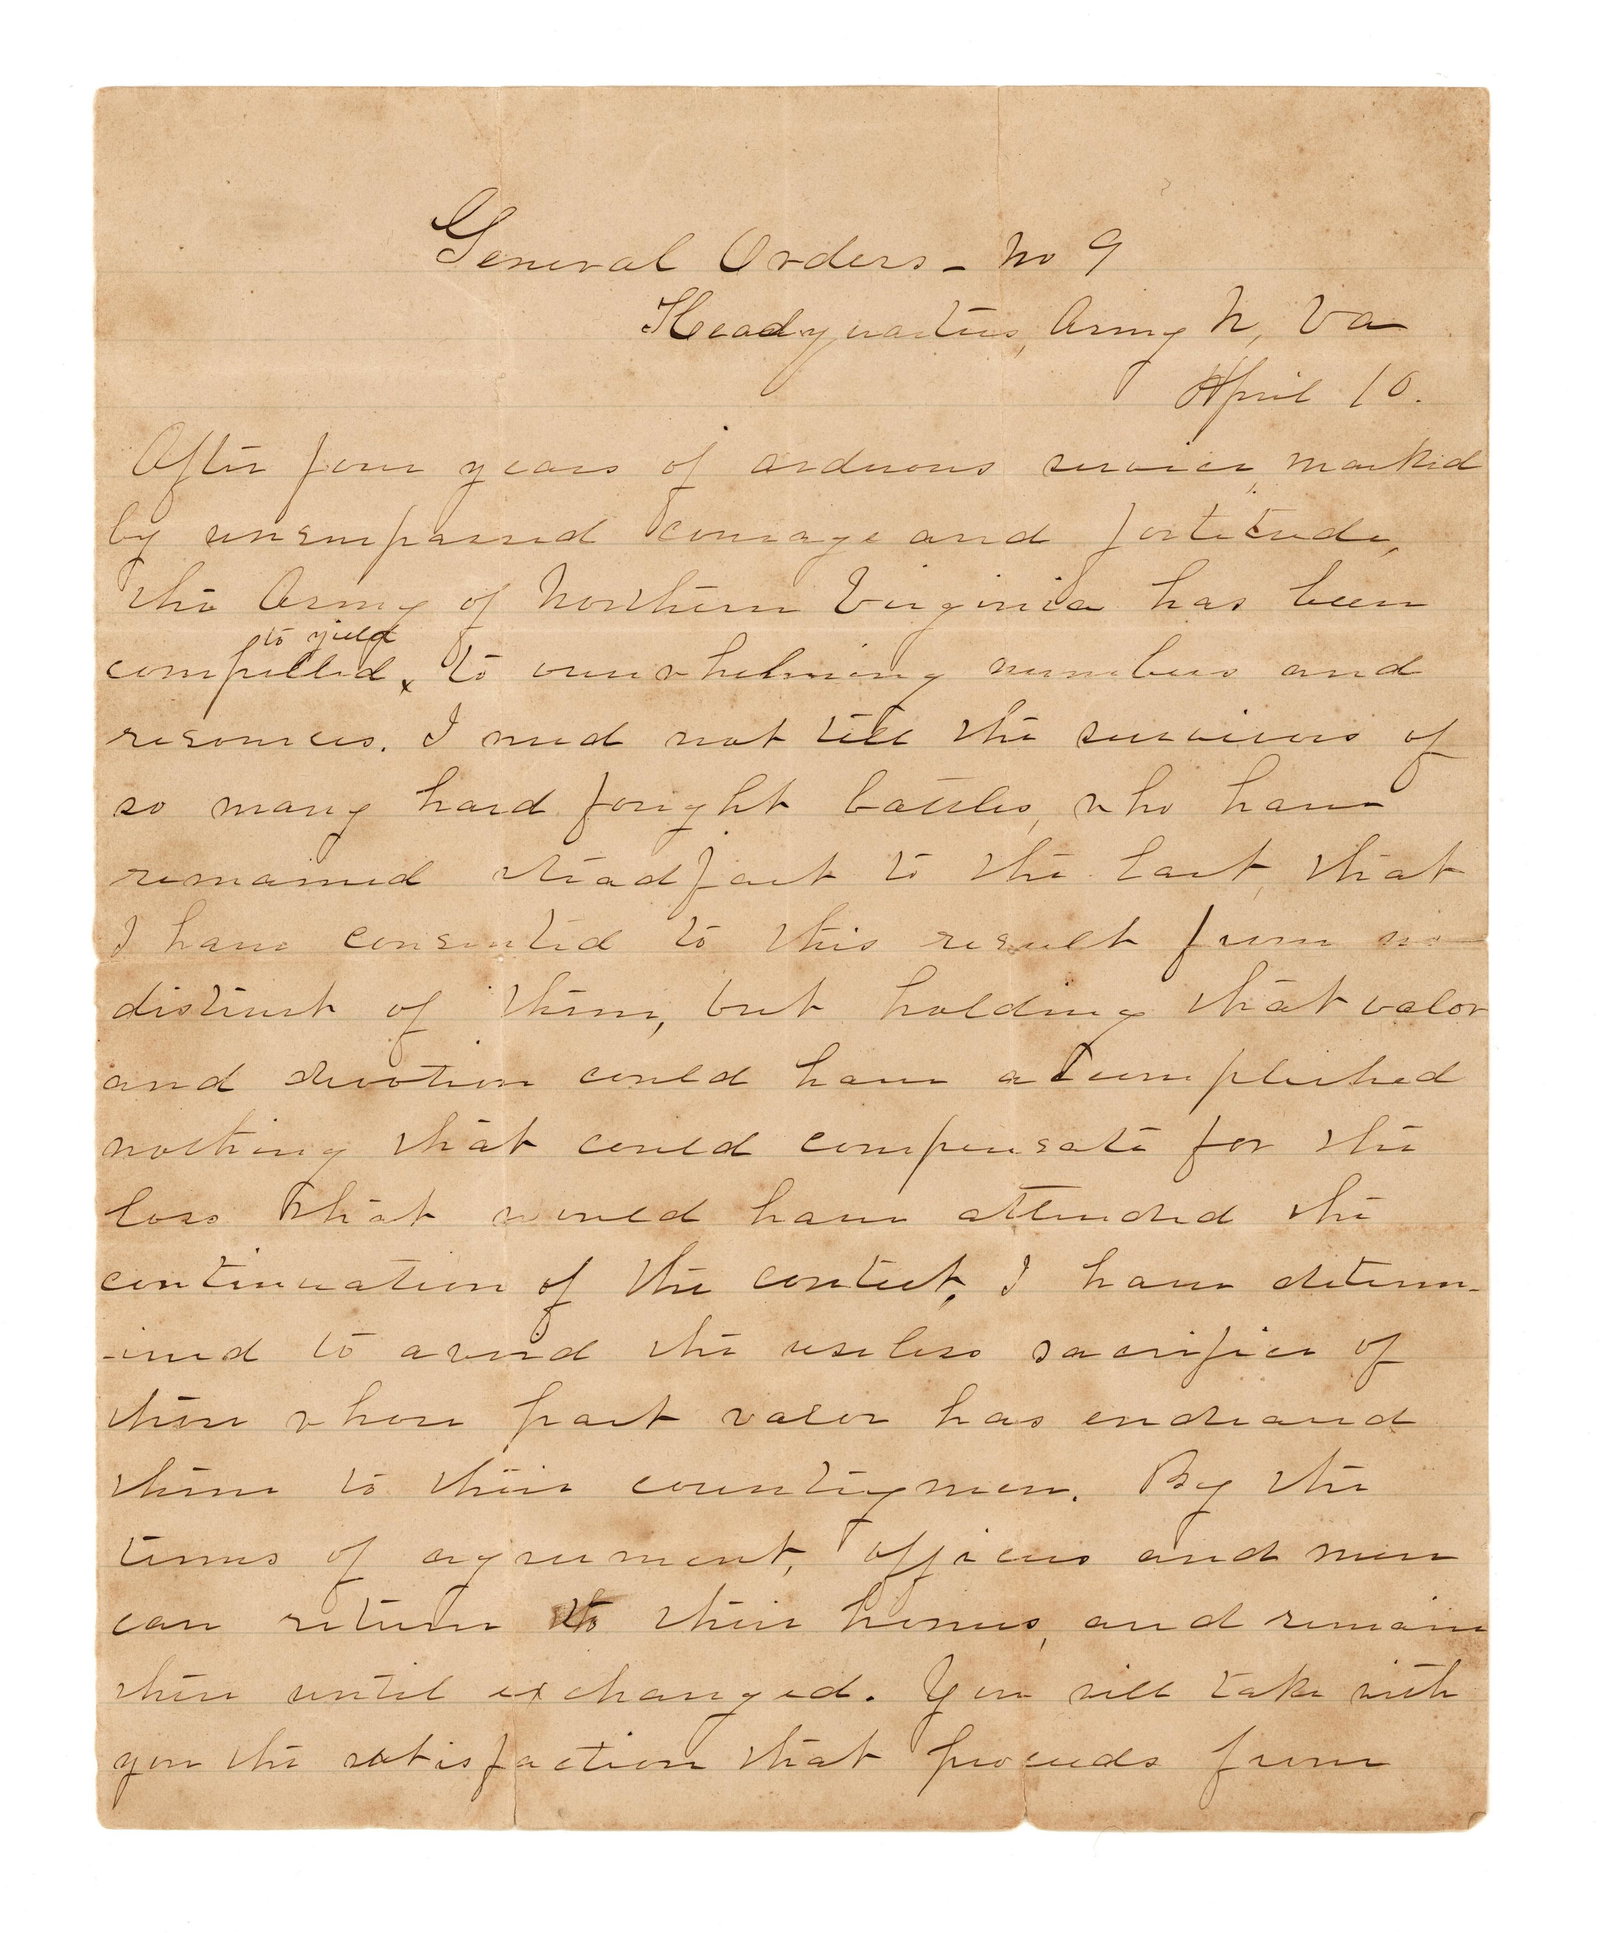 General Orders - No 9
Headquarters, Army N, Va
April 10.
After four years of arduous service, marked
by unsurpassed courage and fortitude,
the Army of Northern Virginia has been
to yield
compelled x to overwhelming numbers and
resources. I need not tell the survivors of
so many hard fought battles, who have
remained steadfast to the last, that
I have consented to this result from no
distrust of them, but holding that valor
and devotion could have accomplished
nothing that could compensate for the
loss that would have attended the
continuation of the contest, I have determ-
-ined to avoid the useless sacrifice of
those whose past valor has endeared
them to their countrymen. By the
terms of agreement, officers and men
can return to their homes, and remain
there until exchanged. You will take with
you the satisfaction that proceeds from